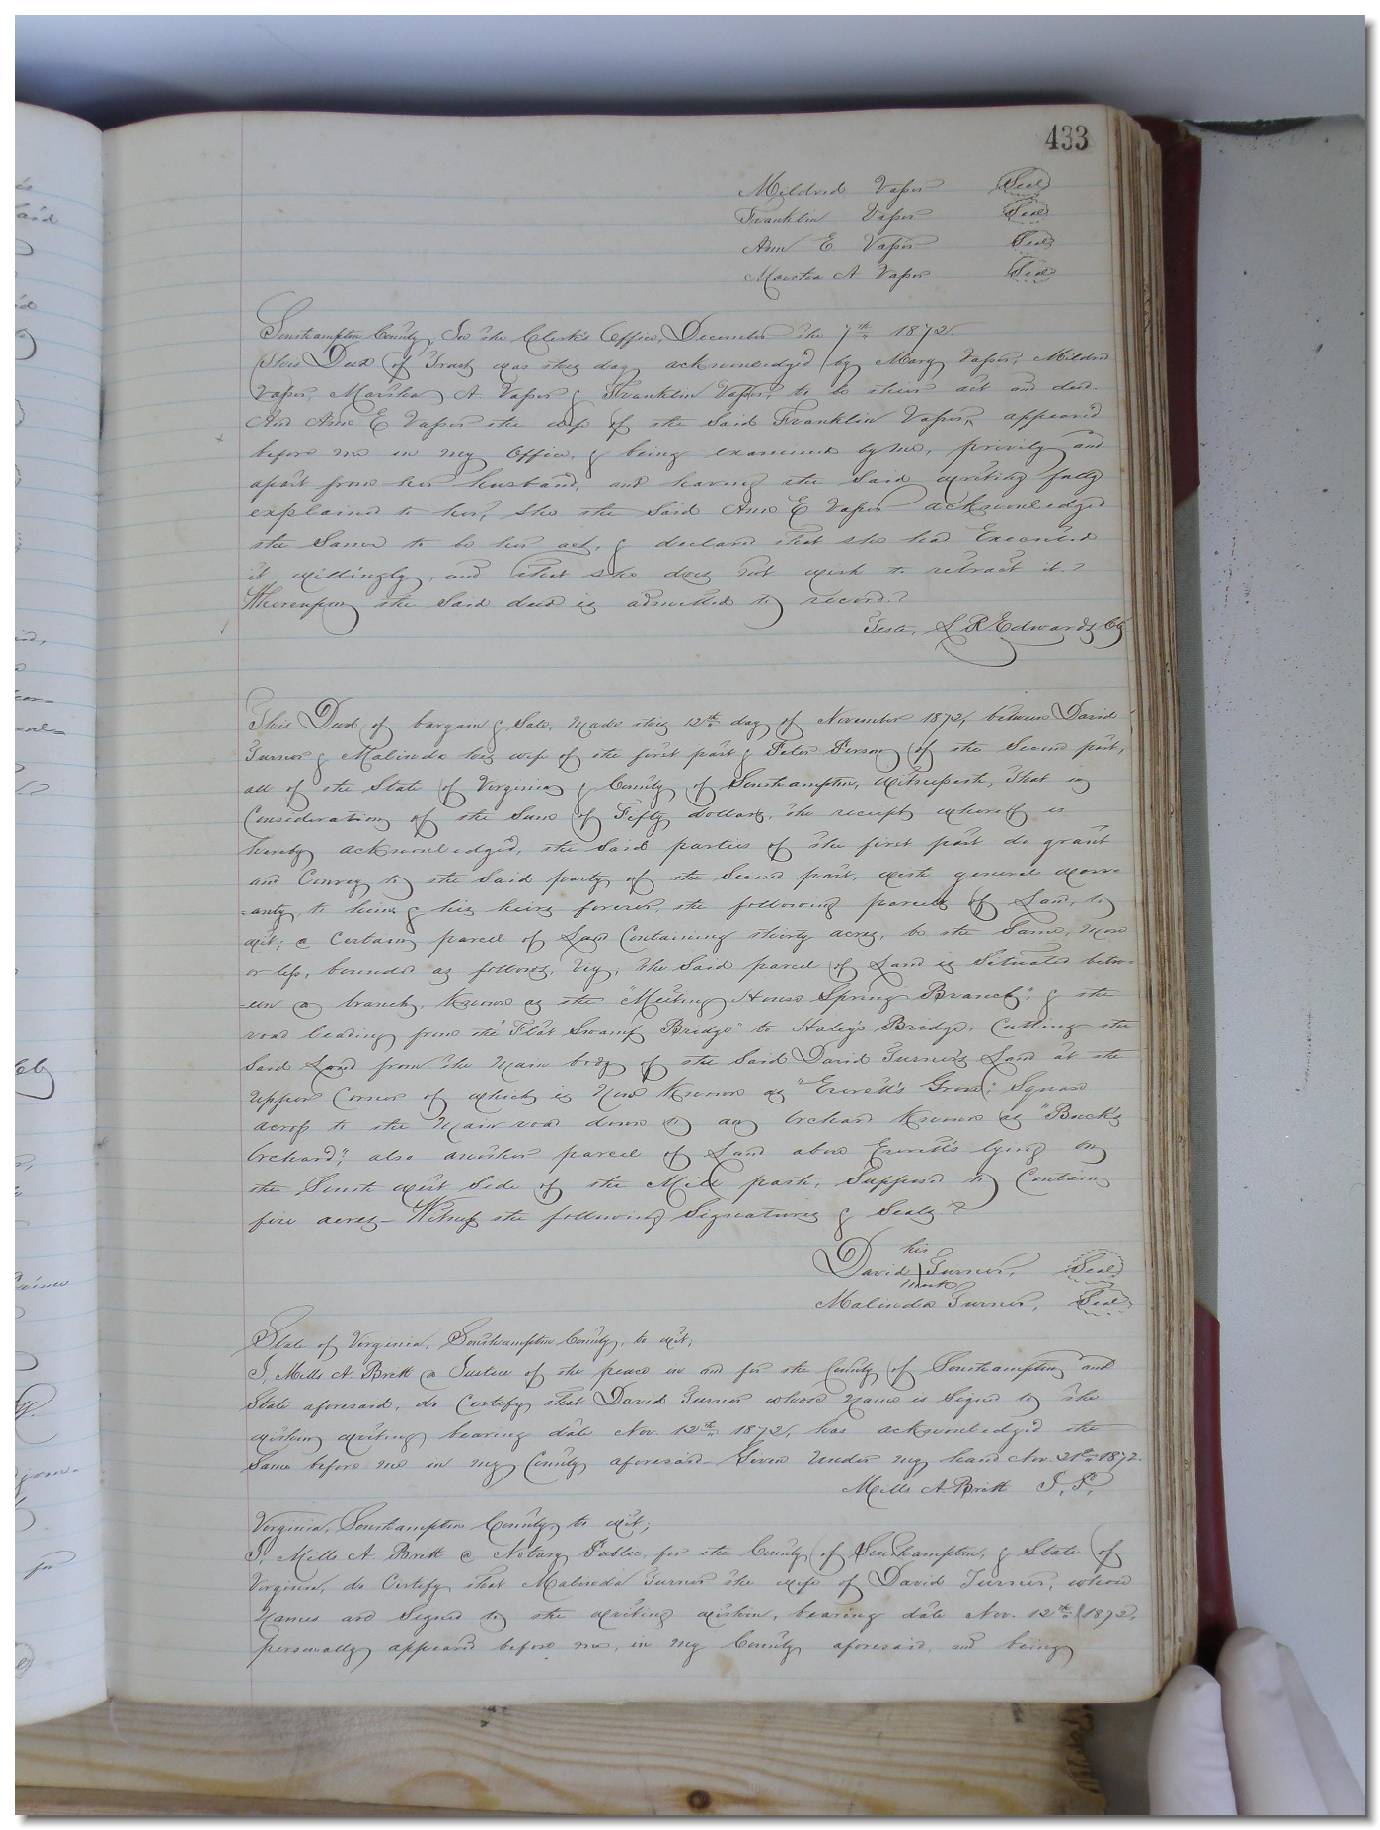 433
Mildred Vaper Seal
Franklin Vaper Seal
Ann E Vaper Seal
Martha A Vaper Seal
Southampton County, In the Clerk's Office, December the 7th 1872.
This Deed of Trust was this day acknowledged by Mary Vaper, Mildred
Vaper, Martha A. Vaper & Franklin Vaper, to be their act and deed.
And Ann E Vaper the wife of the said Franklin Vaper, appeared
before me in my Office, & being examined by me, privily and
apart from her husband, and having the said writing fully
explained to her, she the said Ann E Vaper acknowledged
the Same to be her act, & declared that she had Executed
it willingly, and that she does not wish to retract it.
Whereupon the said deed is admitted to record.
Teste, L R. Edwards, Clk
This Deed of bargain & Sale, Made this 12th day of November 1872, between David
Turner & Malinda his wife of the first part & Peter Person of the Second part,
all of the State of Virginia & County of Southampton, Witnesseth, That in
Consideration of the Sum of Fifty dollars, the receipt whereof is
hereby acknowledged, the said parties of the first part do grant
and Convey to the said party of the Second part, with general warr-
-anty, to him & his heirs forever, the following parcels of Land, to
wit; a Certain parcel of Land Containing thirty acres, be the Same, more
or less, bounded as follows, viz; the Said parcel of Land is Situated betw-
-een a branch, Known as the "Meeting House Spring Branch", & the
road leading from the "Flat Swamp Bridge" to Haley's Bridge, Cutting the
Said Land from the Main body of the Said David Turner's Land at the
Upper Corner of which is Now Known as "Everett's Grove", Square
across to the Main road down to an Orchard Known as "Buck's
Orchard"; also another parcel of Land above Everett's lying on
the South west Side of the Mill path, Supposed to Contain
five acres - Witness the following Signatures & Seals.
his
David Turner, Seal
mark
Malinda Turner, Seal
State of Virginia, Southampton County, to wit;
I, Mills A. Britt a Justice of the peace in and for the County of Southampton and
State aforesaid, do Certify that David Turner whose Name is Signed to the
within writing bearing date Nov. 12th 1872, has acknowledged the
Same before me in my County aforesaid - Given Under my hand Nov. 21st 1872.
Mills A. Britt J. P.
Virginia, Southampton County to wit;
I, Mills A Britt a Notary Public, for the County of Southampton, & State of
Virginia, do Certify that Malinda Turner the wife of David Turner, whose
Names are Signed to the writing within, bearing date Nov. 12th 1872,
personally appeared before me, in my County aforesaid, and being